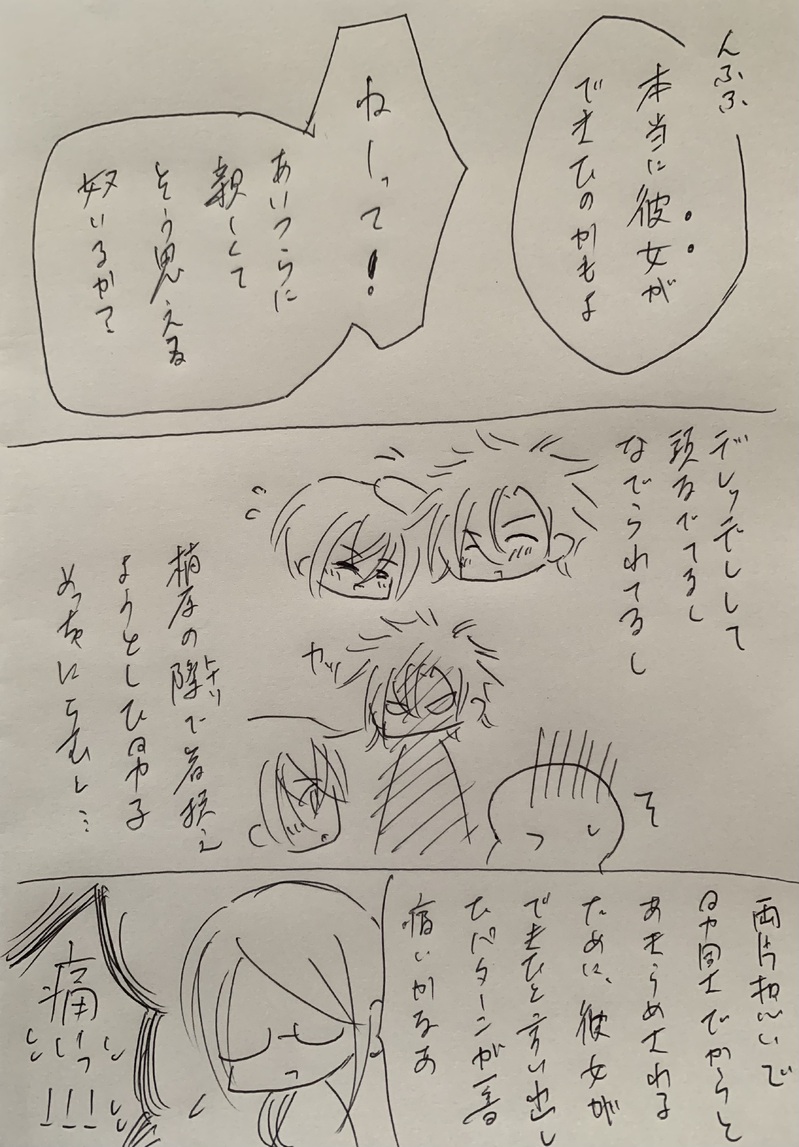 んふふ
本当に彼女が
できたのかもよ
ねーって！
あいつらに
親しくて
そう思える
奴いるかて
デレッデレして
頭なでてるし
なでられてるし
ガッ
梢原の隣で着換え
トナリ
ようとした男子
めっちゃにらむし…
そ
両片想いで
男同士でからと
あきらめされる
ために、彼女が
できたと言い出し
たパターンが一番
痛いかなあ
痛
いっ
!!!